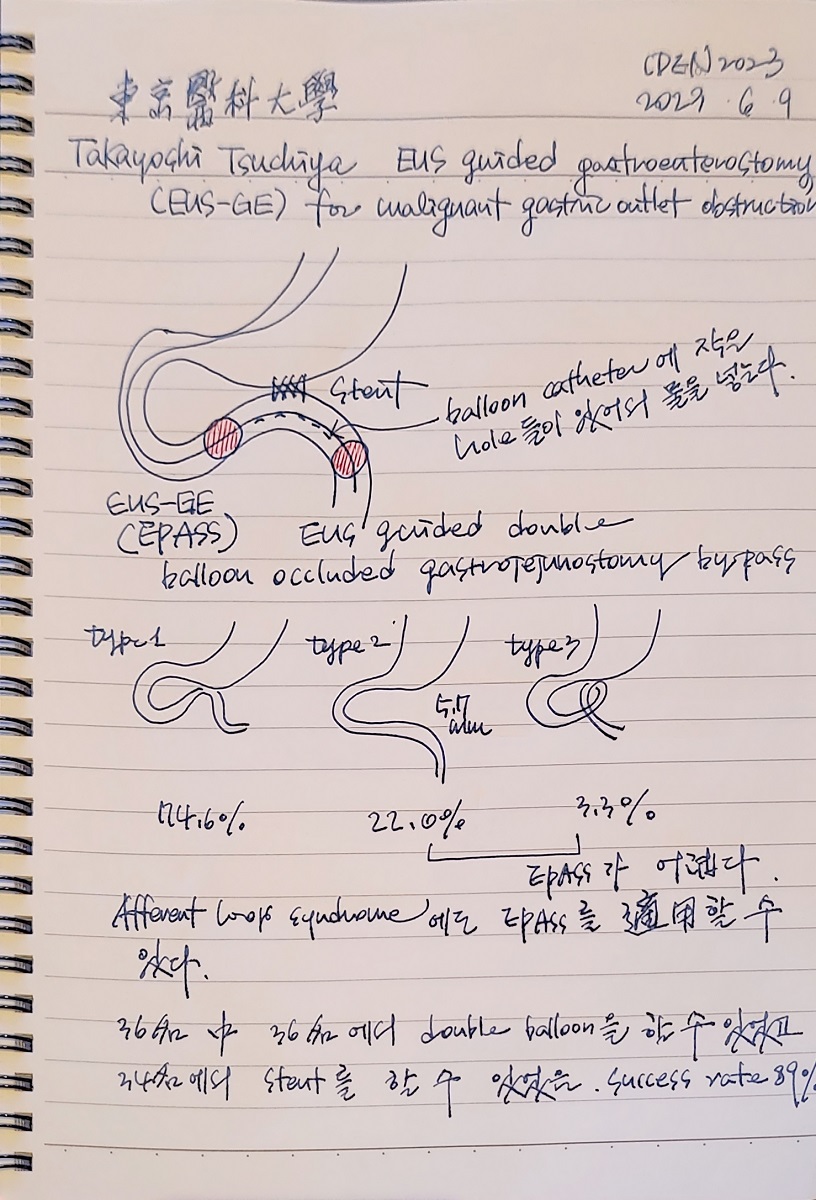 東京醫科大學
CDEN 2023
2023 . 6 . 9
Takayoshi Tsuchiya EUS guided gastroenterostomy
(EUS-GE) for malignant gastric outlet obstruction
stent
balloon catheter에 작은
hole들이 있어서 물을 넣는다.
EUS-GE
(EPASS) EUS guided double
balloon occluded gastrojejunostomy bypass
type1 type2 type3
mm
74.6% 22.0% 3.3%
EPASS가 어렵다.
Afferent loop syndrome에도 EPASS를 適用할 수
있다.
36名 中 36名에서 double balloon을 할 수 있었고
34名에서 stent를 할 수 있었음. success rate 89%